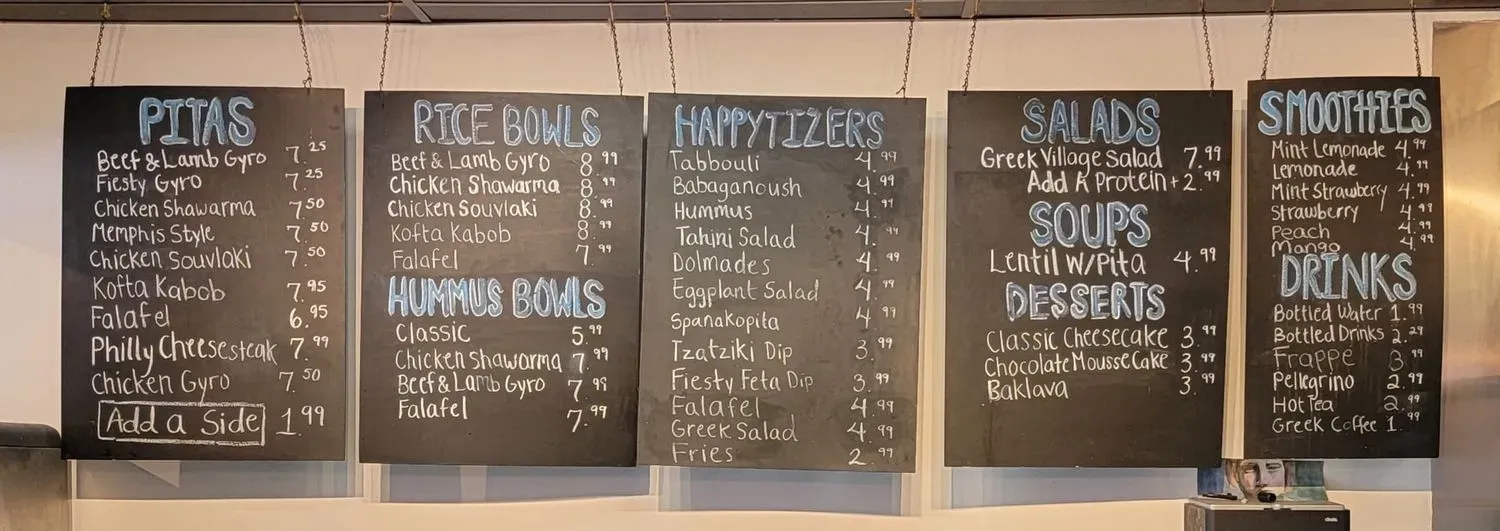 PITAS
Beef & Lamb Gyro 7.25
Fiesty Gyro 7.25
Chicken Shawarma 7.50
Memphis Style 7.50
Chicken Souvlaki 7.50
Kofta Kabob 7.95
Falafel 6.95
Philly Cheesesteak 7.99
Chicken Gyro 7.50
Add a Side 1.99
RICE BOWLS
Beef & Lamb Gyro 8.99
Chicken Shawarma 8.99
Chicken Souvlaki 8.99
Kofta Kabob 8.99
Falafel 7.99
HUMMUS BOWLS
Classic 5.99
Chicken Shawarma 7.99
Beef & Lamb Gyro 7.99
Falafel 7.99
HAPPYTIZERS
Tabbouli 4.99
Babaganoush 4.99
Hummus 4.99
Tahini Salad 4.99
Dolmades 4.99
Eggplant Salad 4.99
Spanakopita 4.99
Tzatziki Dip 3.99
Fiesty Feta Dip 3.99
Falafel 4.99
Greek Salad 4.99
Fries 2.99
SALADS
Greek Village Salad 7.99
Add A Protein +2.99
SOUPS
Lentil W/Pita 4.99
DESSERTS
Classic Cheesecake 3.99
Chocolate Mousse Cake 3.99
Baklava 3.99
SMOOTHIES
Mint Lemonade 4.99
Lemonade 4.99
Mint Strawberry 4.99
Strawberry 4.99
Peach 4.99
Mango 4.99
DRINKS
Bottled Water 1.99
Bottled Drinks 2.29
Frappe 3.99
Pellegrino 2.99
Hot Tea 2.99
Greek Coffee 1.99